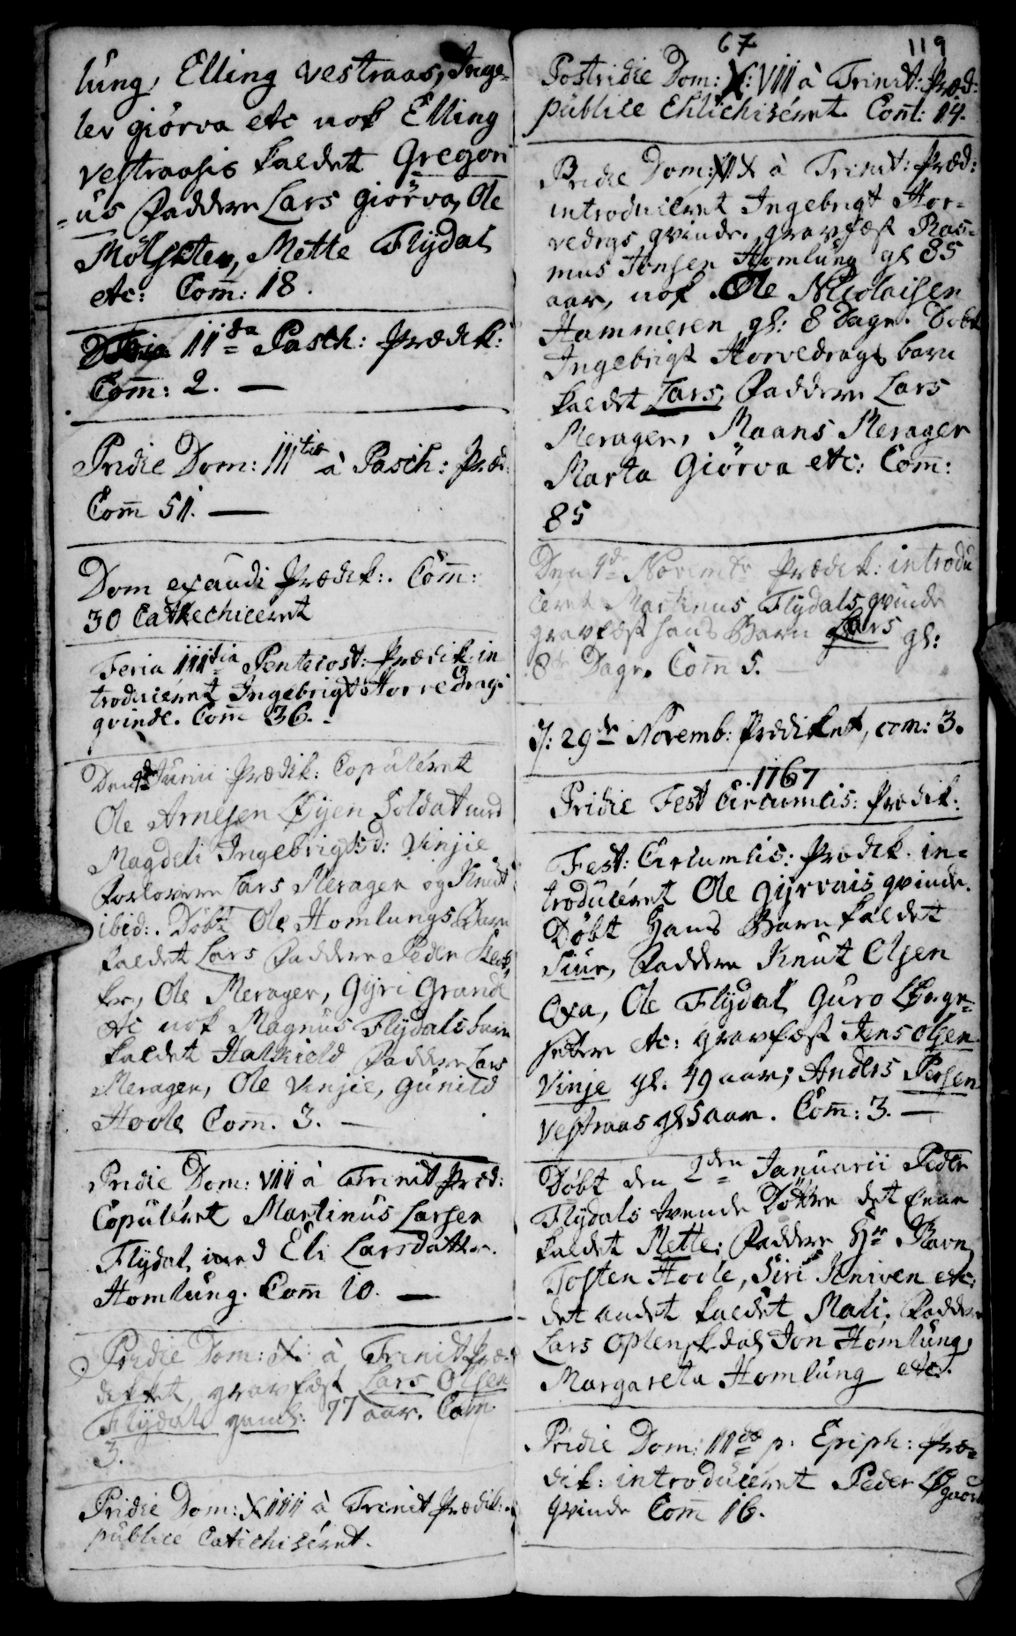 lung, Elling vestraas, Inge=
lev giörva etc nok Elling
vestraasis kaldet Gregori
=us Faddere Lars giörva, Ole
Mölsæter, Mette Flÿdal
etc: Com̄: 18.
Feria II da Pasch: Prædik:
Com̄: 2. —
Pridie Dom: III tia à Pasch: Præd:
Com̄ 51. —
Dom exaudi Prædik:. Com̄:
30 Cathechiceret
Feria III tia Pentecost: Prædik: in
troduceret Ingebrigt Horvedrags
qvinde. Com̄ 36.
Den 9de Junii Prædik: Copuleret
Ole Arnesen Øÿen Soldat med
Magdeli Ingebrigtsd: Vinjie
Forlovere Lars Merager og Knut
ibid:. Döbt Ole Homlungs Barn
kaldet Lars Faddere Peder
Ole Merager, Gÿri Grand
etc nok Magnus Flÿdals barn
kaldet Halkield Faddere Lars
Merager, Ole Vinjie, Gunild
Hoole Com̄. 3. —
Pridie Dom: VIII à Trinit Præd:
Copuleret Martinus Larsen
Flÿdal med Eli Larsdatter
Homlung. Com̄ 10. —
Pridie Dom: à Trinit Præ=
diket, gravfæst Lars Olsen
Flÿdal gaml: 77 aar. Com̄
3.
Pridie Dom: XIIII à Trinit Prædik:
publice Catichiséret.
67 119
Postridie Dom: X:VIII à Trinit: Præd:
publice Chatichiséret. Com̄: 14.
Pridie Dom: à Trinit: Præd:
introduceret Ingebrigt Hor=
vedrags qvinde, gravfæst Ras=
mus Jensen Homlung gl 85
aar, nok Ole Nicolaisen
Hammeren gl: 8 Dage. Döbt
Ingebrigt Horvedrags barn
kaldet Lars, Faddere Lars
Merager, Maans Merager
Marta Giörva etc: Com̄:
85
Den Novembr Prædik: introdu
ceret Martinus Flÿdals qvinde
gravfæst hans Barn Lars gl:
8 Dage. Com̄ 5.
d: 29de Novemb: Prædiket, com: 3.
1767
Pridie Fest Circumcis: Prædik:
Fest: Circumcis: Prædik. in=
troduceret Ole gÿrvais qvinde.
Döbt Hans Barn kaldet
Siur, Faddere Knut Olsen
Oxa, Ole Flÿdal Guro
sætre etc: gravfæst Jens Olsen
Vinje gl. 49 aar; Anders Persen
Vestraas gl 5 aar. Com̄: 3. —
Döbt den 2den Januarii Peder
Flÿdals tvende Döttre det eene
kaldet Mette; Faddere Hr Ravn,
Tosten Hoole, Siri Kniven etc:
det andet kaldet Mali; Faddere
Lars Oplenskdal Jon Homlung,
Margareta Homlung etc:
Pridie Dom: II da p: Epiph: Præ=
dik: introduceret Peder
qvinde Com̄ 16.